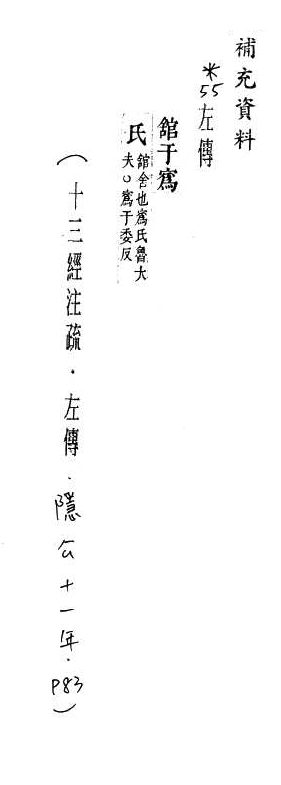 補充資料
*55左傳
館于寪
氏館舍也寪氏魯大夫○寪于委反
(十三經注疏·左傳·隱公十一年·P83)